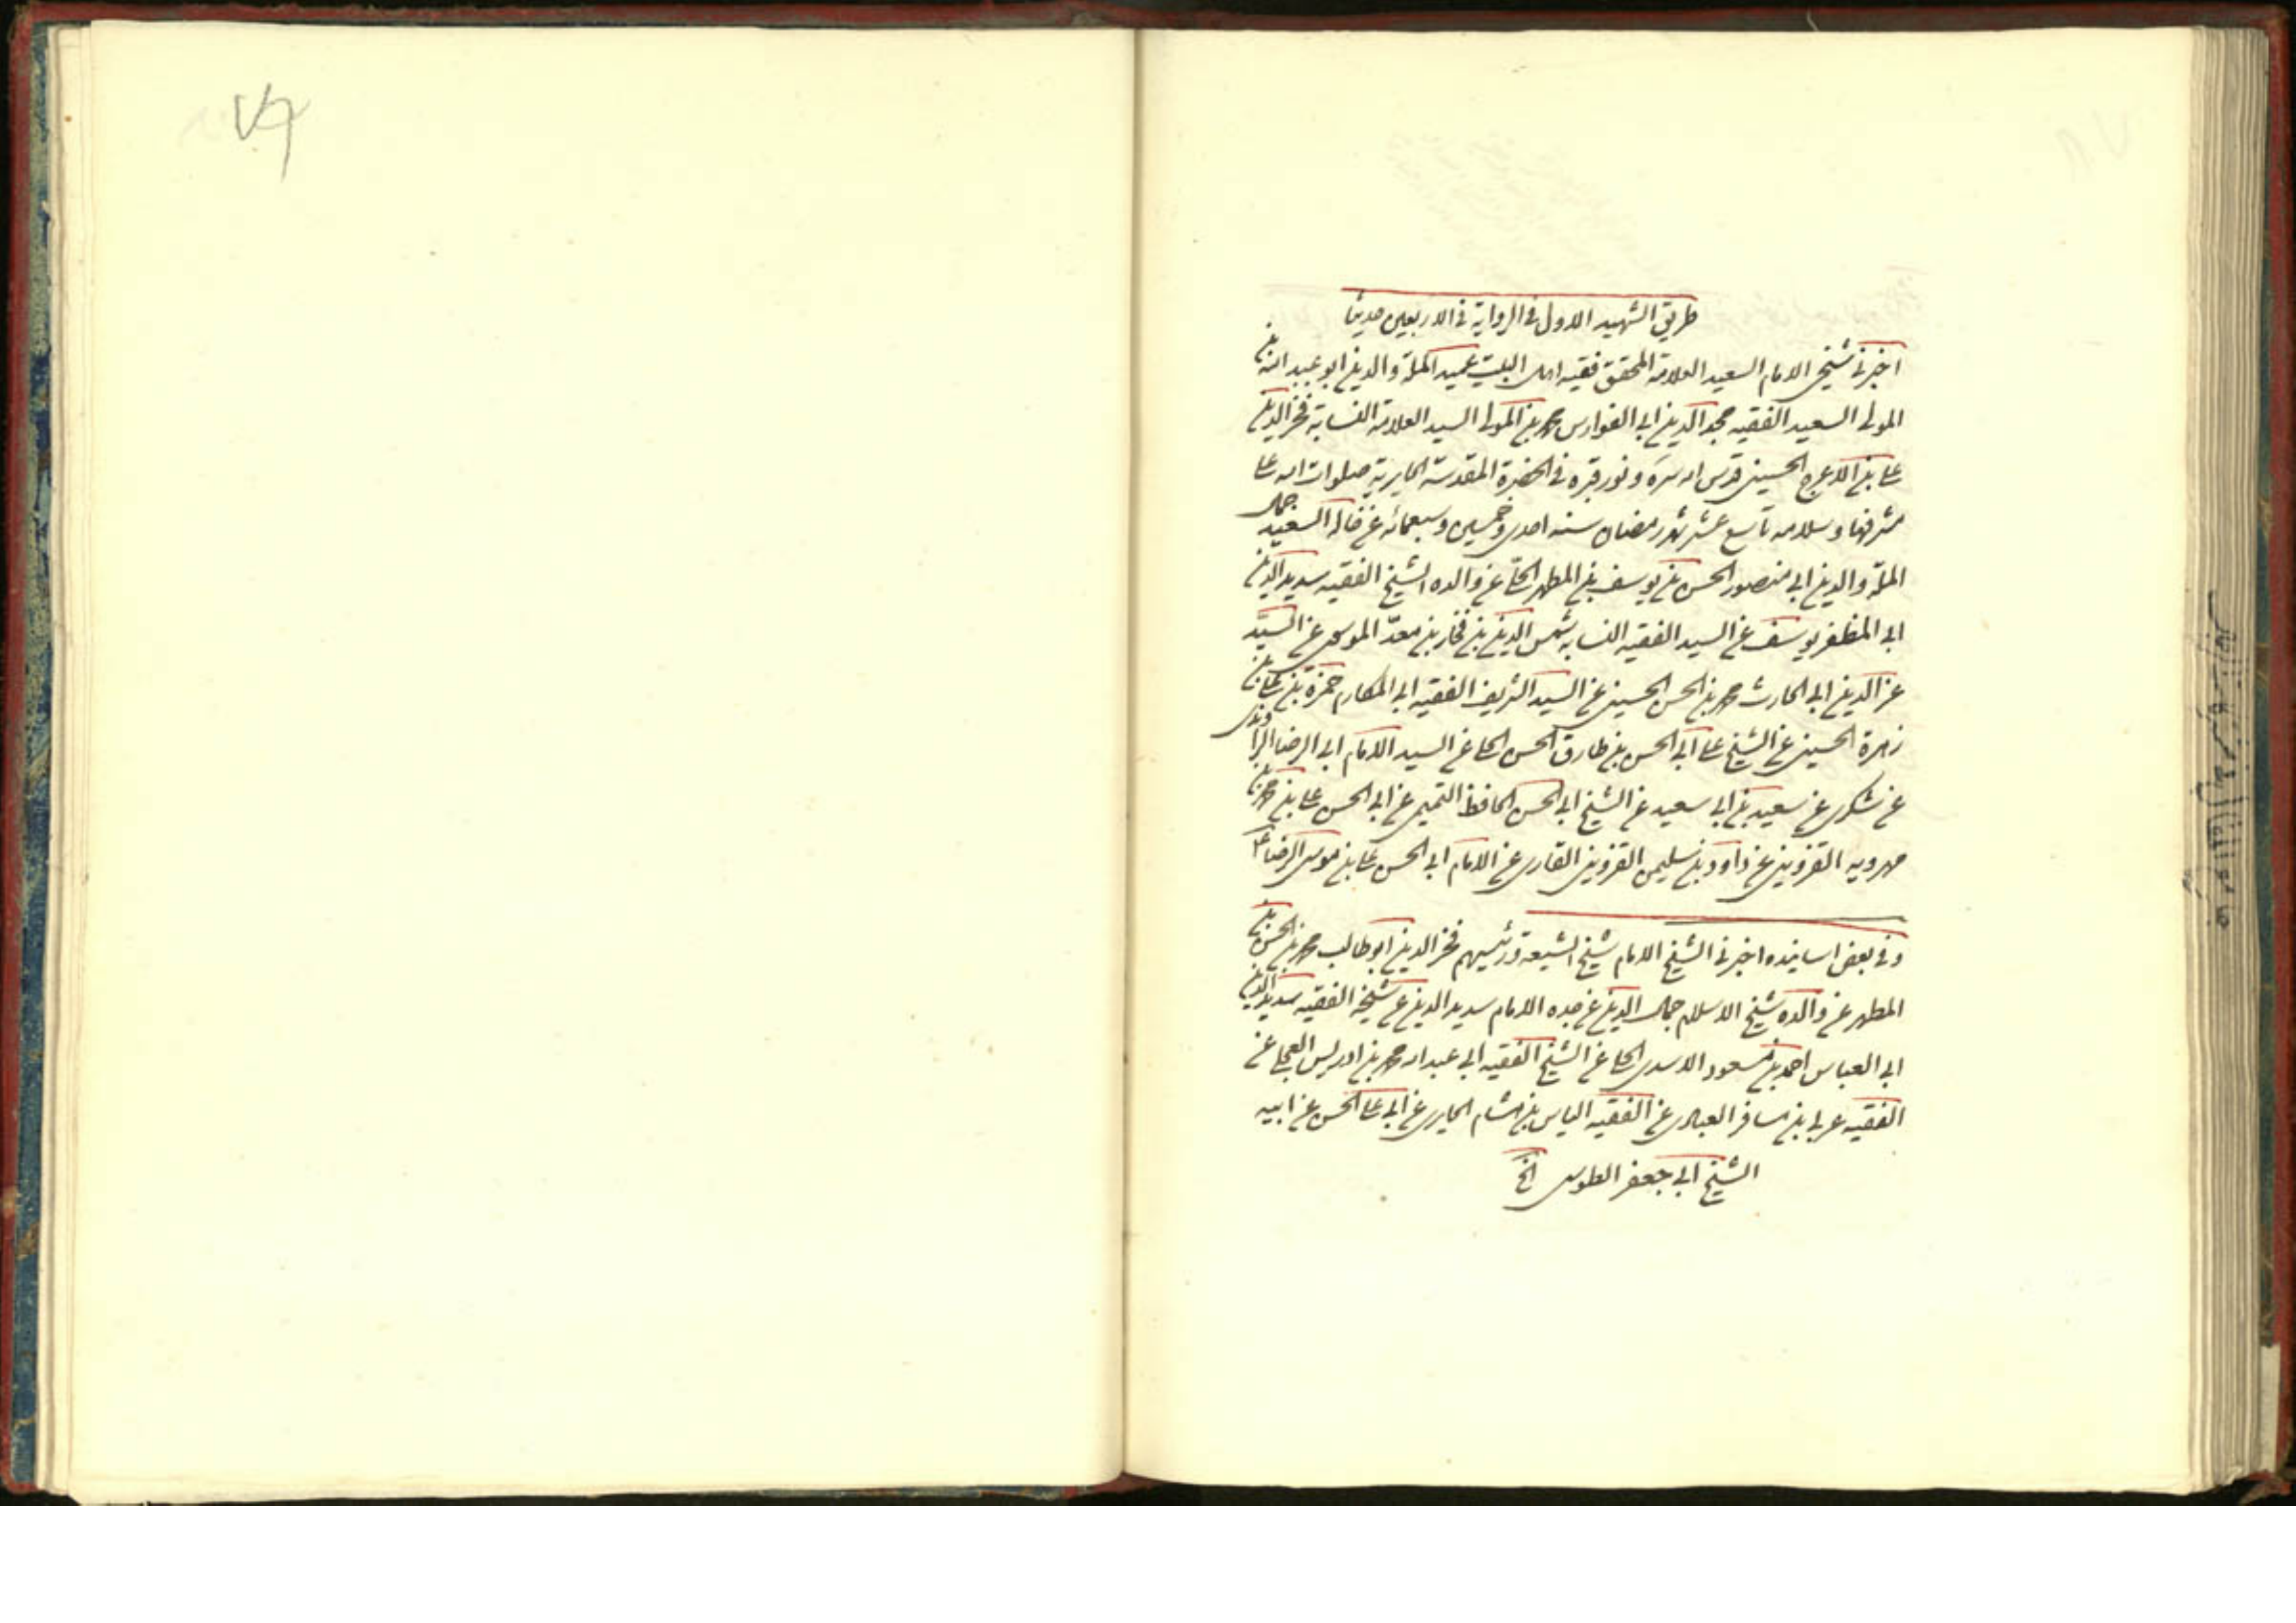 طريق الشهيد الاول في الرواية في الاربعين حديثا
اخبرني شيخي الامام السعيد العلامة المحقق فقيه اهل البيت عميد الملة والدين ابو عبد الله بن
المولى السعيد الفقيه مجد الدين ابي الفوارس محمد بن المولى السيد العلامة النسابة فخر الدين
علي بن الاعرج الحسيني قدس الله سره ونور قبره في الحضرة المقدسة الحايرية صلوات الله على
مشرفها وسلامه تاسع عشر شهر رمضان سنه احدى وخمسين وسبعمائه عن خاله السعيد جمال
الملة والدين ابي منصور الحسن بن يوسف بن المطهر الحلي عن والده الشيخ الفقيه سديد الدين
ابي المظفر يوسف عن السيد الفقيه النسابه شمس الدين بن فخار بن معد الموسوي عن السيد
عز الدين ابي الحارث محمد بن الحسن الحسيني عن السيد الشريف الفقيه ابي المكارم حمزة بن علي بن
زهرة الحسيني عن الشيخ علي ابي الحسن بن طارق الحسن الحلي عن السيد الامام ابي الرضا الراوندي
عن شكري عن سعيد بن ابي سعيد عن الشيخ ابي الحسن الحافظ التميمي عن ابي الحسن علي بن محمد بن
مهرويه القزويني عن داود بن سليمن القزويني القاري عن الامام ابي الحسن علي بن موسى الرضا ع
وفي بعض اسانيده اخبرني الشيخ الامام شيخ الشيعة ورئيسهم فخر الدين ابو طالب محمد بن الحسن بن
المطهر عن والده شيخ الاسلام جمال الدين عن جده الامام سديد الدين عن شيخه الفقيه سديد الدين
ابي العباس احمد بن مسعود الاسدي الحلي عن الشيخ الفقيه ابي عبد الله محمد بن ادريس العجلي عن
الفقيه عربي بن مسافر العبادي عن الفقيه الياس بن هشام الحايري عن ابي علي الحسن عن ابيه
الشيخ ابي جعفر الطوسي الخ